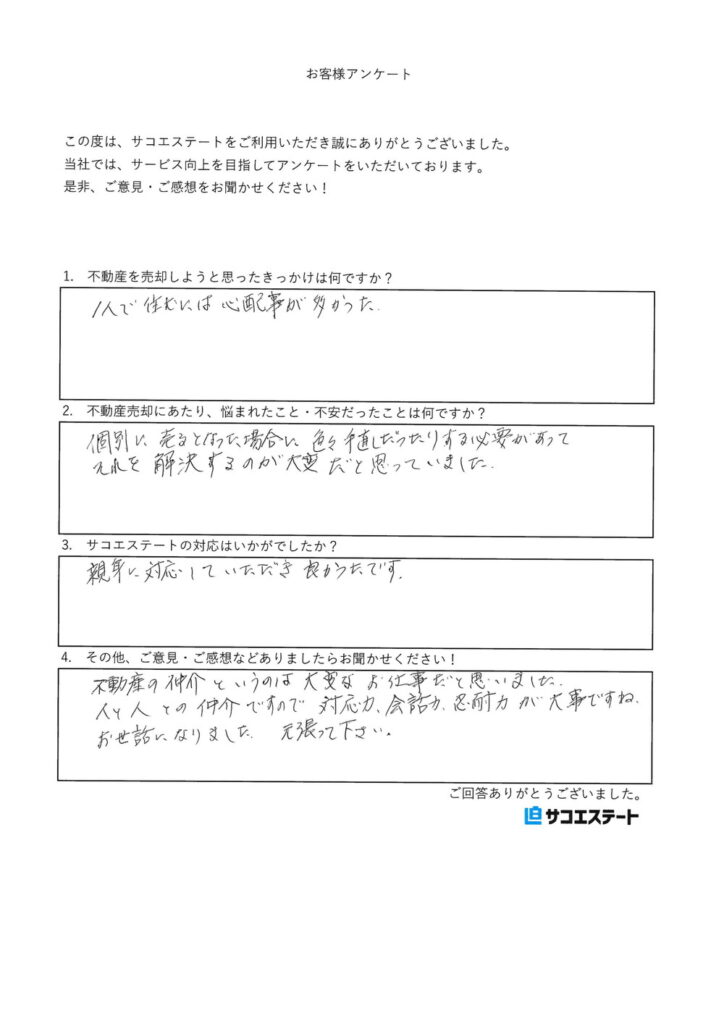 お客様アンケート
この度は、サコエステートをご利用いただき誠にありがとうございました。
当社では、サービス向上を目指してアンケートをいただいております。
是非、ご意見・ご感想をお聞かせください！
1. 不動産を売却しようと思ったきっかけは何ですか？
1人で住むには心配事が多かった.
2. 不動産売却にあたり、悩まれたこと・不安だったことは何ですか？
個別に売るとなった場合に色々手直しだったりする必要があって
それを解決するのが大変だと思っていました.
3. サコエステートの対応はいかがでしたか？
親身に対応していただき良かったです.
4. その他、ご意見・ご感想などありましたらお聞かせください！
不動産の仲介というのは大変なお仕事だと思いました.
人と人との仲介ですので対応力、会話力、忍耐力が大事ですね.
お世話になりました. 元張って下さい。
ご回答ありがとうございました。
サコエステート